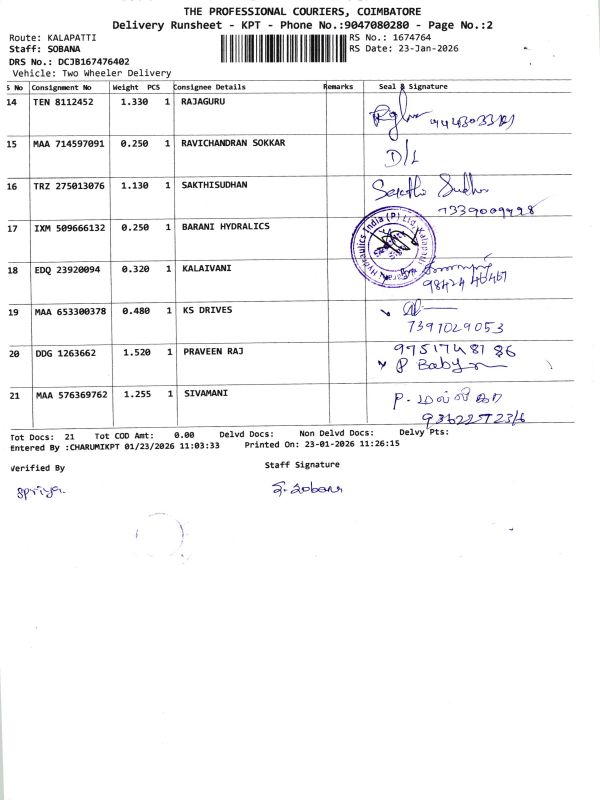 THE PROFESSIONAL COURIERS, COIMBATORE
Delivery Runsheet - KPT - Phone No.:9047080280 - Page No.:2
Route: KALAPATTI
RS No.: 1674764
Staff: SOBANA
RS Date: 23-Jan-2026
DRS No.: DCJB167476402
Vehicle: Two Wheeler Delivery
S No Consignment No Weight PCS Consignee Details Remarks Seal & Signature
14 TEN 8112452 1.330 1 RAJAGURU
15 MAA 714597091 0.250 1 RAVICHANDRAN SOKKAR D/L
16 TRZ 275013076 1.130 1 SAKTHISUDHAN Sakthi Sudhan
7339009498
17 IXM 509666132 0.250 1 BARANI HYDRALICS
18 EDQ 23920094 0.320 1 KALAIVANI
98424 46467
19 MAA 653300378 0.480 1 KS DRIVES
7397029053
20 DDG 1263662 1.520 1 PRAVEEN RAJ 9751748186
21 MAA 576369762 1.255 1 SIVAMANI P. மல்லிகா
Tot Docs: 21 Tot COD Amt: 0.00 Delvd Docs: Non Delvd Docs: Delvy Pts:
Entered By :CHARUMIKPT 01/23/2026 11:03:33 Printed On: 23-01-2026 11:26:15
Verified By
Staff Signature
Spriya.